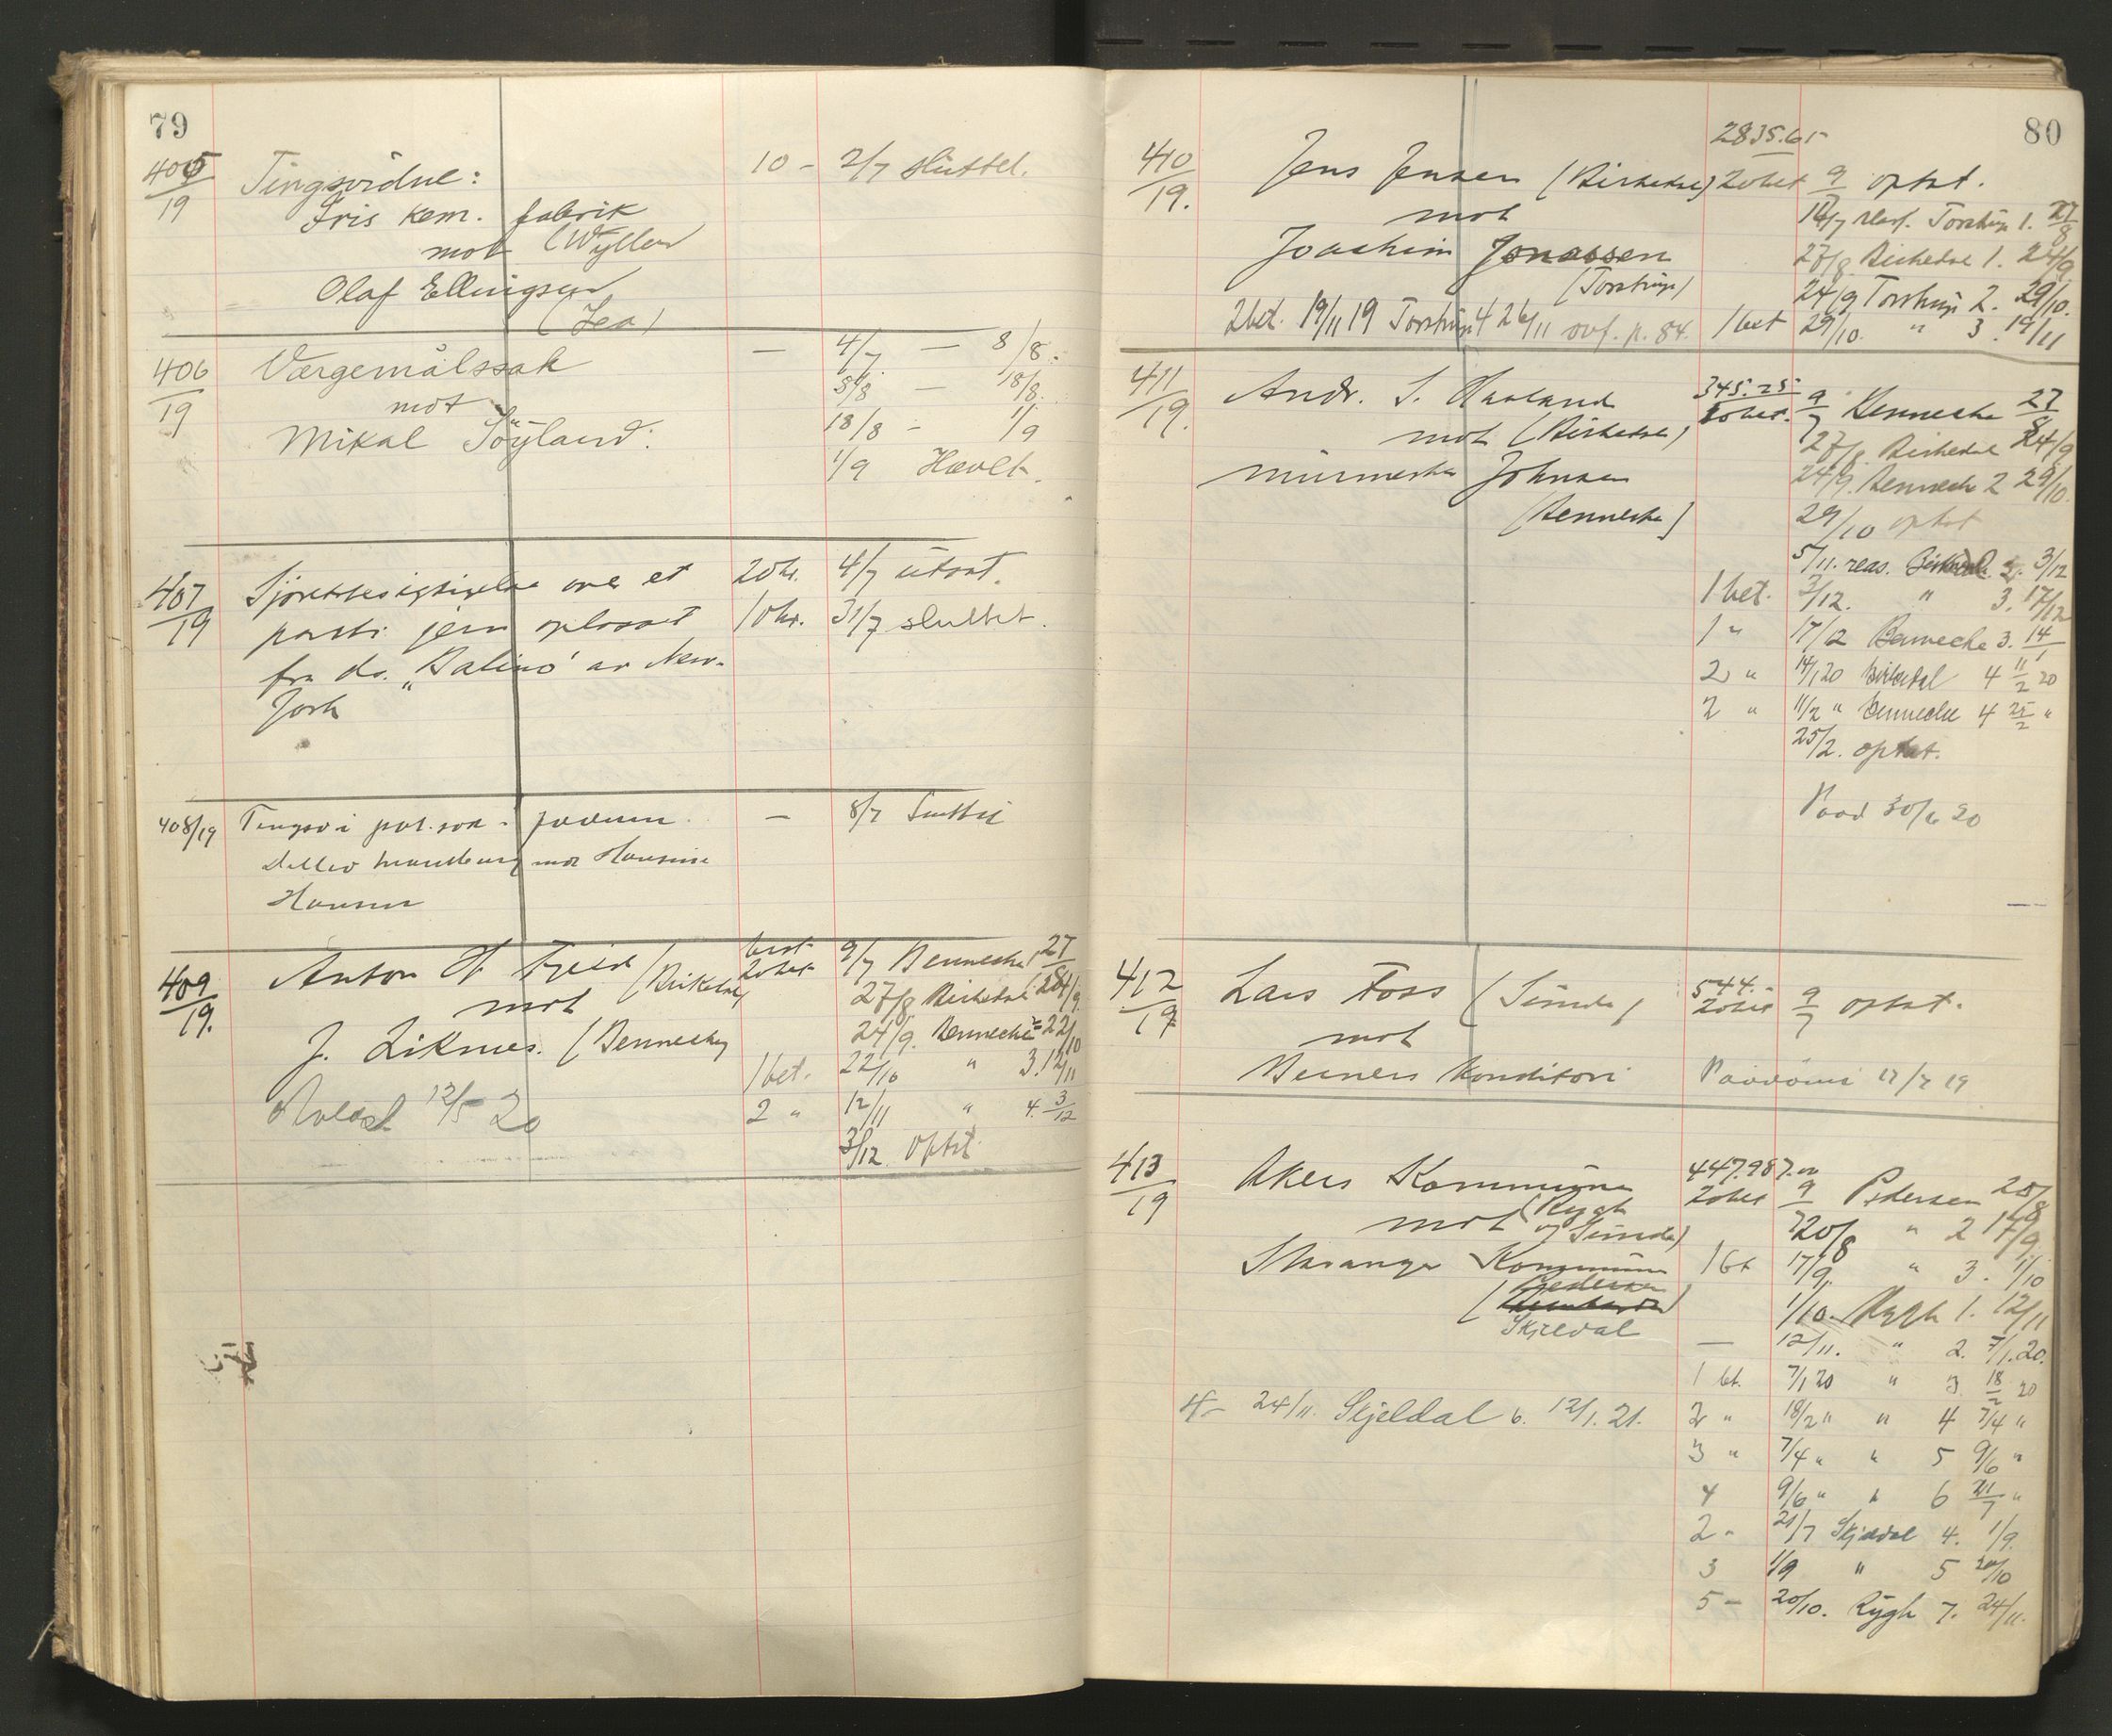 79
405/19 Tingsvidne: 10 - 2/7 sluttet.
Iris kem. fabrik
mot (Wyller)
Olaf Ellingsen
(Lea)
406/19 Værgemålssak — 4/7 — 8/8.
mot 8/8 — 18/8.
Mikal Söyland. 18/8 - 1/9
1/9 Hævet.
407/19 Sjörettsbesigtigelse over et 20 kr. 4/7 utsat.
parti jern oplosset 10 kr. 31/7 sluttet.
fra ds. "Balino" av New-
York
408/19 Tingsv i pat.sak — 8/7 Sluttet
mot Hansine
Hansen
409/19. Anton H Fjeld (Birkedal) 20 bet 9/7 Bennecke 1 27/8
mot 27/8 Birkedal 1 24/9.
J. Liknes. (Bennecke) 24/9. Bennecke 2 22/10
1 bet. 22/10 " 3. 12/11
Avlæst 12/5 20 2 " 12/11 " 4. 3/12
3/12 optat
80
2835.65
410/19. Jens Jensen (Birkedal) 20 bet 9/7 optat.
mot 16/7 reas. Torstrup 1. 27/8
Joachim Jonassen 27/8 Birkedal 1. 24/9
(Torstrup) 24/9 Torstrup 2. 29/10.
2 bet. 19/11 19 Torstrup 4 26/11 ovf. p. 84. 1 bet 29/10. " 3. 19/11
411/19. Andr. S. Haaland 345.25 20 bet. 9/7 Bennecke 27/8
mot (Birkedal) 27/8. Birkedal 24/9
Murmester Johnsen 24/9. Bennecke 2 29/10.
(Bennecke) 29/10 optat
5/11. reas. Birkedal 2. 3/12
1 bet. 3/12. " 3. 17/12
1 " 17/12 Bennecke 3. 14/1
2 " 14/1 20 Birkedal 4 11/2 20
2 " 11/2 " Bennecke 4 25/2 "
25/2. optat.
Paad 30/6 20
412/19 Lars Foss (Sunde) 544.- 20 bet 9/7 optat.
mot
Beiners Konditori Paadömt 17/7 19
413/19 Akers Kommune 447.987.00 20 bet 9/7 Pedersen 20/8
mot (Rygh og Sunde) 20/8 " 2 17/9.
Stavanger Kommune 1 bet 17/9. " 3. 1/10
(Pedersen) 1/10. Rygh 1. 12/11
Skjeldal — 12/11. " 2. 7/1.20.
1 bet. 7/1 20 " 3 18/2 20
4 - 24/11. Skjeldal 6. 12/1. 21. 2 " 18/2 " " 4 7/4 "
3 " 7/4 " " 5 9/6 "
4 9/6 " " 6 21/7 "
2 - 21/7 Skjeldal 4. 1/9.
3 1/9 " 5 20/10
5 - 20/10. Rygh 7. 24/11.